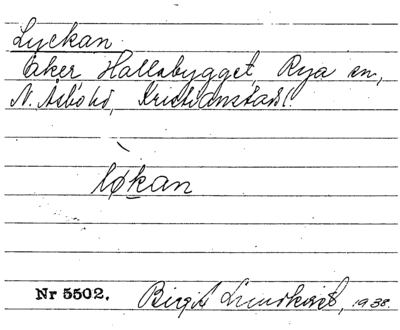 Lyckan
Åker Hallabygget, Rya sn,
N. Åsbo hd, Kristianstads l.
løkan
Nr 5502. Birgit Lundkvist, 1938.